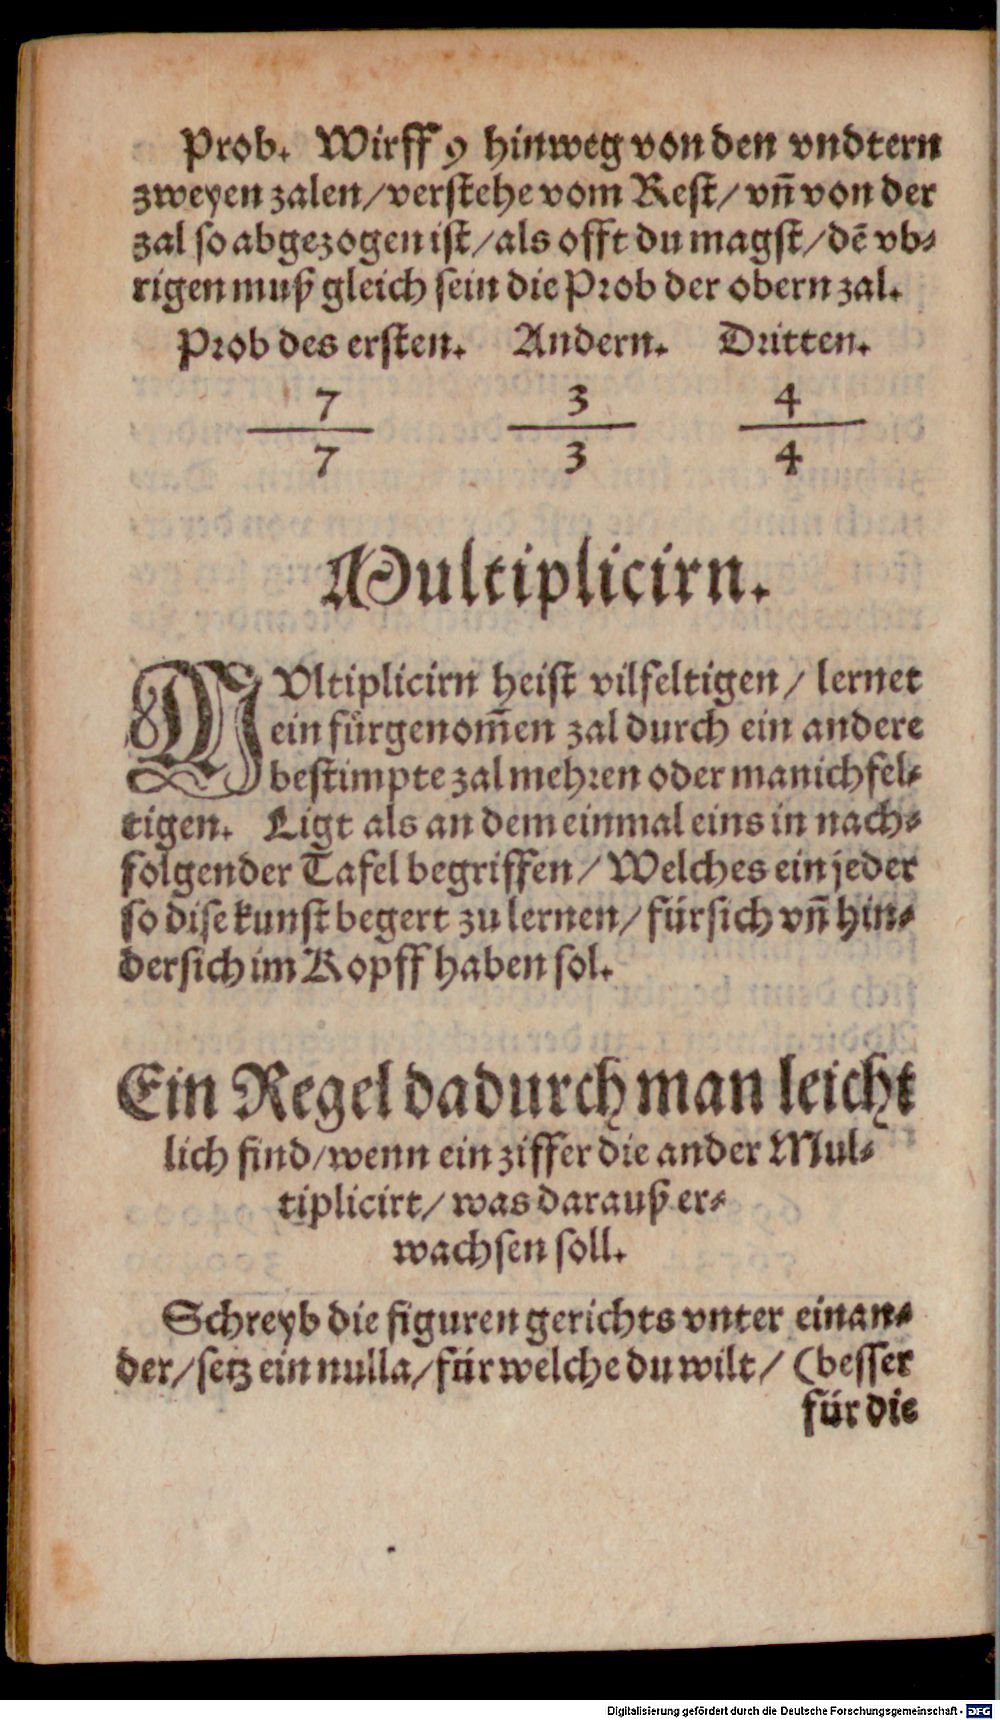 Prob. Wirff 9 hinweg von den vndtern
zweyen zalen/verstehe vom Rest/vñ von der
zal so abgezogen ist/als offt du magst/dē vb⸗
rigen muß gleich sein die Prob der obern zal.
Prob des ersten. Andern. Dritten.
7 3 4
7 3 4
Multiplicirn.
MVltiplicirn heist vilfeltigen/ lernet
ein fürgenom̃en zal durch ein andere
bestimpte zal mehren oder manichfel⸗
tigen. Ligt als an dem einmal eins in nach⸗
folgender Tafel begriffen/Welches ein jeder
so dise kunst begert zu lernen/fürsich vñ hin⸗
dersich im Kopff haben sol.
Ein Regel dadurch man leicht
lich find/wenn ein ziffer die ander Mul⸗
tiplicirt/was darauß er⸗
wachsen soll.
Schreyb die figuren gerichts vnter einan⸗
der/setz ein nulla/für welche du wilt/ (besser
für die
Digitalisierung gefördert durch die Deutsche Forschungsgemeinschaft - DFG